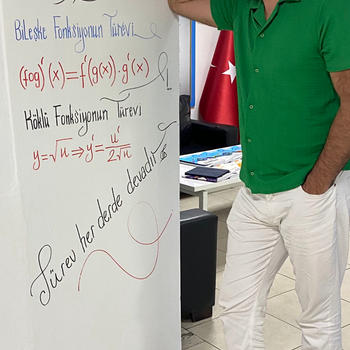 Bileşke Fonksiyonun Türevi
(fog)'(x) = f'(g(x)) . g'(x)
Köklü Fonksiyonun Türevi
y = √u ⇒ y' = u' / 2√u
Türev her derde devadır